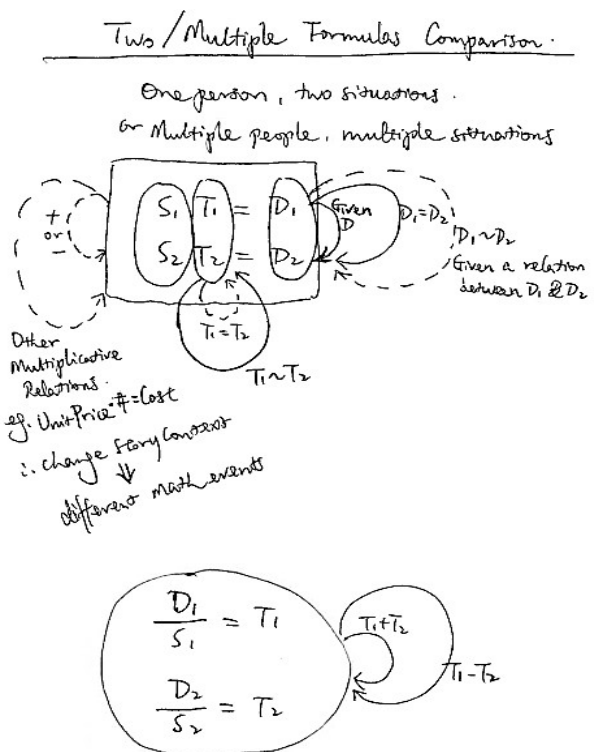 Two/Multiple Formulas Comparison.
One person, two situations.
or Multiple people, multiple situations
S₁ T₁ = D₁
S₂ T₂ = D₂
+
or
-
Given
D
D₁=D₂
D₁~D₂
Given a relation
between D₁ & D₂
T₁=T₂
T₁~T₂
Other
Multiplicative
Relations.
eg. UnitPrice·#=Cost
∴ change story context
⇓
different math events
D₁/S₁ = T₁
D₂/S₂ = T₂
T₁+T₂
T₁-T₂